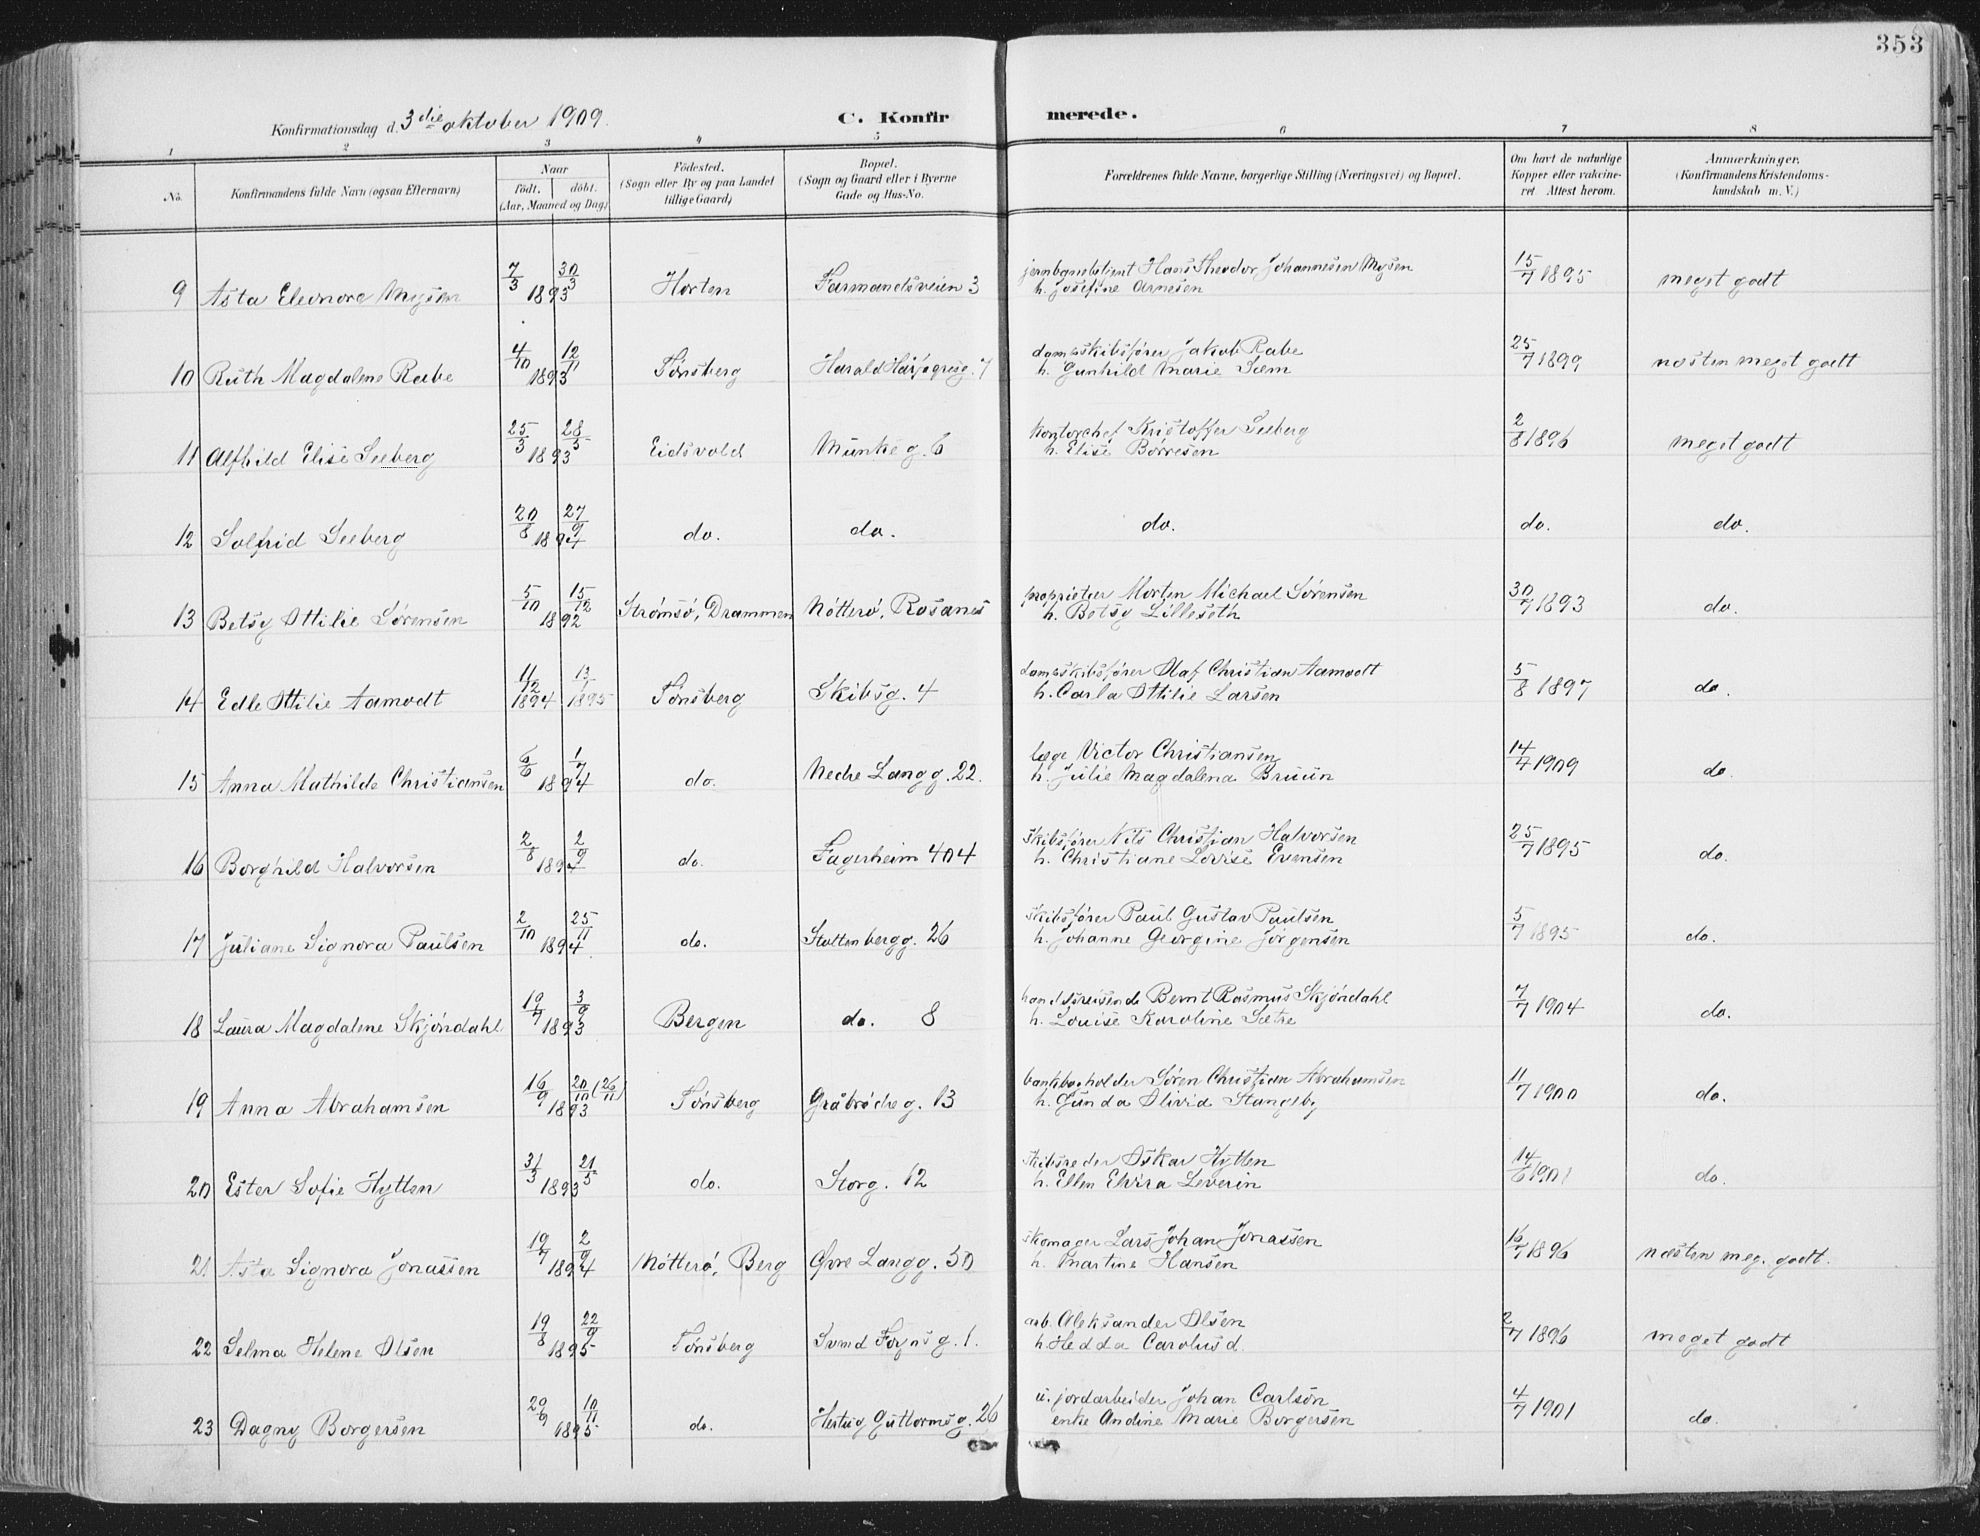 353
Konfirmationsdag d. 3die oktober 1909.
C. Konfirmerede.
1 2 3 4 5 6 7 8
No.
Konfirmandens fulde Navn (ogsaa Efternavn)
Naar
födt. döbt.
(Aar, Maaned og Dag)
Födested.
(Sogn eller By og paa Landet
tillige Gaard)
Bopæl.
(Sogn og Gaard eller i Byerne
Gade og Hus-No.
Forældrenes fulde Navne, borgerlige Stilling (Næringsvei) og Bopæl.
Om havt de naturlige
Kopper eller vakcine-
ret. Attest herom.
Anmærkninger.
(Konfirmandens Kristendoms-
kundskab m. V.)
9 Asta Eleonore Mysen 7/3 30/3 1893 Horten Farmandsveien 3 jernbanebetjent Hans Theodor Johannesen Mysen 15/7 1895 meget godt
h. Josefine Arnesen
10 Ruth Magdalene Rabe 4/10 12/11 1893 Tønsberg Harald Hårfagresg. 7 dampskibsfører Jakob Rabe 25/7 1899 næsten meget godt
h. Gunhild Marie Sem
11 Alfhild Elise Seeberg 25/3 28/5 1893 Eidsvold Munkeg. 6 kontorchef Kristoffer Seeberg 2/8 1896 meget godt
h. Elise Børresen
12 Solfrid Seeberg 20/8 27/9 1894 do. do. do. do. do.
13 Betsy Ottilie Sørensen 5/10 15/12 1892 Strømsø, Drammen Nøtterø, Rosanes proprietær Morten Michael Sørensen 30/7 1893 do.
h. Betsy Lilleseth
14 Edle Ottilie Aamodt 11/12 1894 13/1 1895 Tønsberg Skibsg. 4 dampskibsfører Olaf Christian Aamodt 5/8 1897 do.
h. Carla Ottilie Larsen
15 Anna Mathilde Christiansen 6/6 1/7 1894 do. Nedre Langg. 22. læge Victor Christiansen 14/7 1909 do.
h. Julie Magdalena Bruun
16 Borghild Halvorsen 2/8 2/9 1894 do. Fagerheim 404 skibsfører Nils Christian Halvorsen 25/7 1895 do.
h. Christiane Lovise Evensen
17 Juliane Signora Paulsen 2/10 25/11 1894 do. Stoltenbergg. 26 skibsfører Paul Gustav Paulsen 5/7 1895 do.
h. Johanne Georgine Jørgensen
18 Laura Magdalene Skjøndahl 19/7 3/9 1893 Bergen do. 8 handelsreisende Bernt Rasmus Skjøndahl 7/7 1904 do.
h. Louise Karoline Sætre
19 Anna Abrahamsen 16/9 20/10 (26/11) 1893 Tønsberg Gråbrødreg. 13 bankbogholder Søren Christian Abrahamsen 11/7 1900 do.
h. Gunda Olivia Stangeby
20 Ester Sofie Hytten 31/3 21/5 1893 do. Storg. 12 skibsreder Oskar Hytten 14/6 1901 do.
h. Ellen Elvira Leverin
21 Asta Signora Jonassen 19/7 2/9 1894 Nøtterø, Berg Øvre Langg. 50 skomager Lars Johan Jonassen 16/7 1896 næsten meg. godt.
h. Martine Hansen
22 Selma Helene Olsen 19/8 22/9 1895 Tønsberg Svend Foynsg. 1. arb. Aleksander Olsen 2/7 1896 meget godt
h. Hedda Carolusd.
23 Dagny Borgersen 29/9 10/11 1895 do. Hertug Guttormsg. 26 u. jordarbeider Johan Carlson 4/7 1901 do.
enke Andine Marie Borgersen